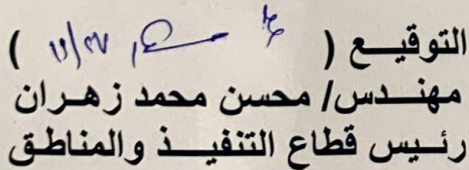 التوقيـع ( )
مهنـدس/ محسن محمد زهـران
رئـيس قطاع التنفيـذ والمناطـق